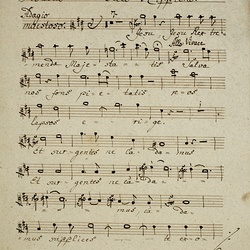 Adagio
maestoso.
Jesu Jesu Rex tre
All. Vivace
menda Majes- ta- tis Salva
nos fons pie- tatis re- os
lapsos e- ri- ge.
Et sur- gentes ne ca- da- mus
Et sur- gentes ne ca- da-
mus ca- de-
mus supplices te exo-